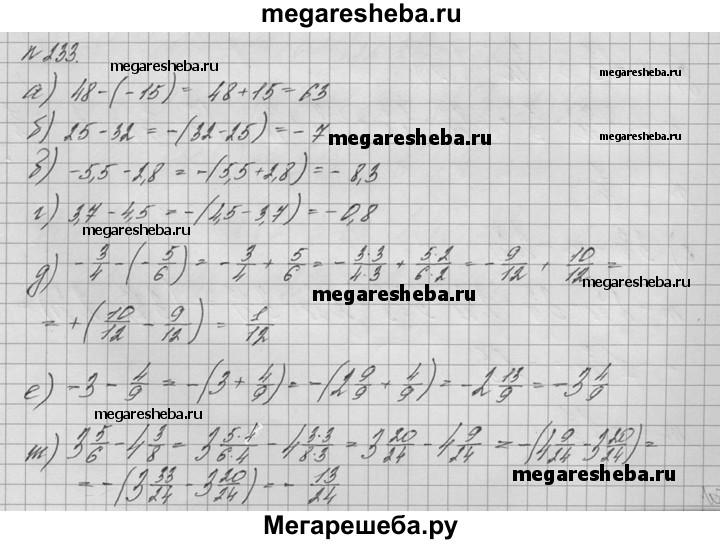 megaresheba.ru
№ 233.
megaresheba.ru
megaresheba.ru
а) 48-(-15) = 48+15=63
б) 25-32 = -(32-25) = -7
megaresheba.ru
megaresheba.ru
в) -5,5-2,8 = -(5,5+2,8) = -8,3
г) 3,7-4,5 = -(4,5-3,7) = -0,8
megaresheba.ru
д) -3/4 - (-5/6) = -3/4 + 5/6 = -3·3/4·3 + 5·2/6·2 = -9/12 + 10/12 =
megaresheba.ru
megaresheba.ru
= +(10/12 - 9/12) = 1/12
е) -3 - 4/9 = -(3 + 4/9) = -(2 9/9 + 4/9) = -2 13/9 = -3 4/9
megaresheba.ru
ж) 3 5/6 - 4 3/8 = 3 5·4/6·4 - 4 3·3/8·3 = 3 20/24 - 4 9/24 = -(4 9/24 - 3 20/24) =
megaresheba.ru
= -(3 33/24 - 3 20/24) = -13/24
Мегарешеба.ру